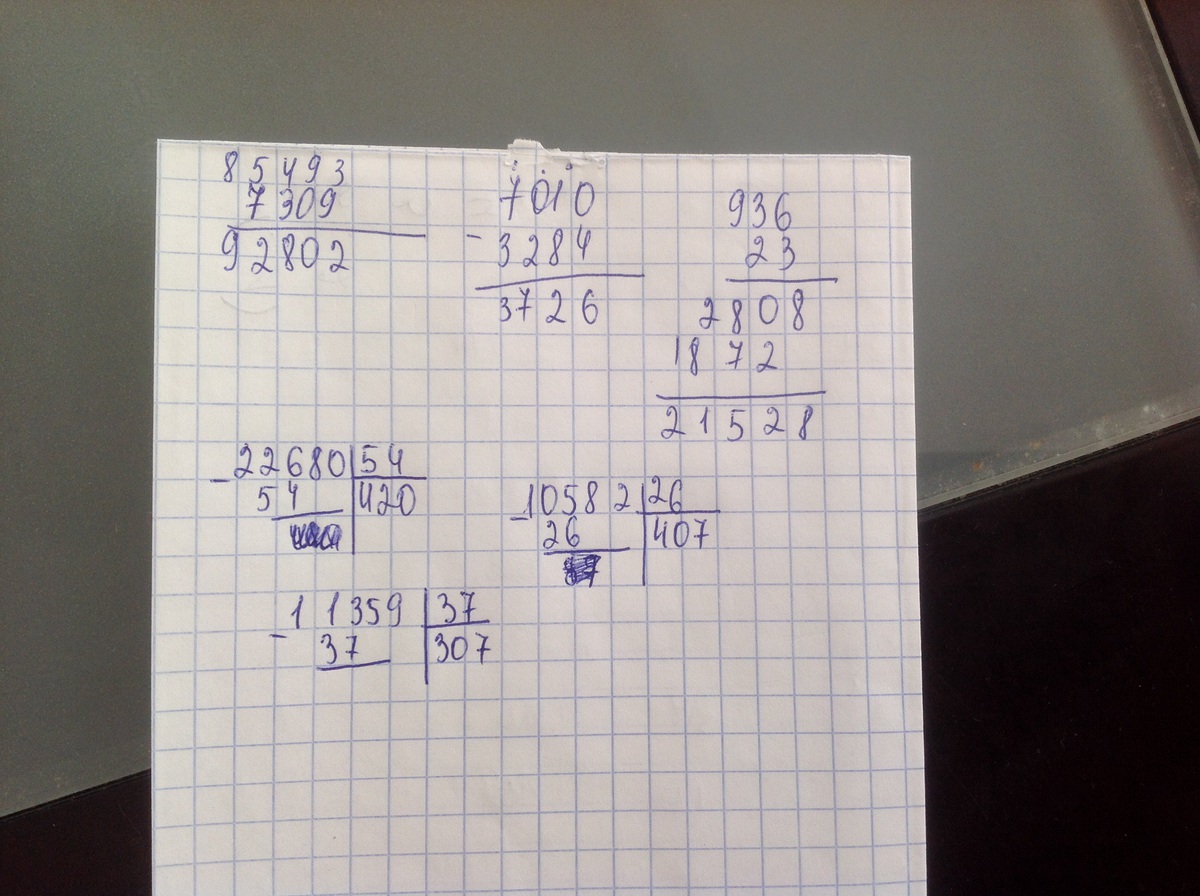 85493
7309
92802
7010
- 3284
3726
936
23
2808
1872
21528
- 22680 | 54
54 | 420
- 10582 | 26
26 | 407
- 11359 | 37
37 | 307